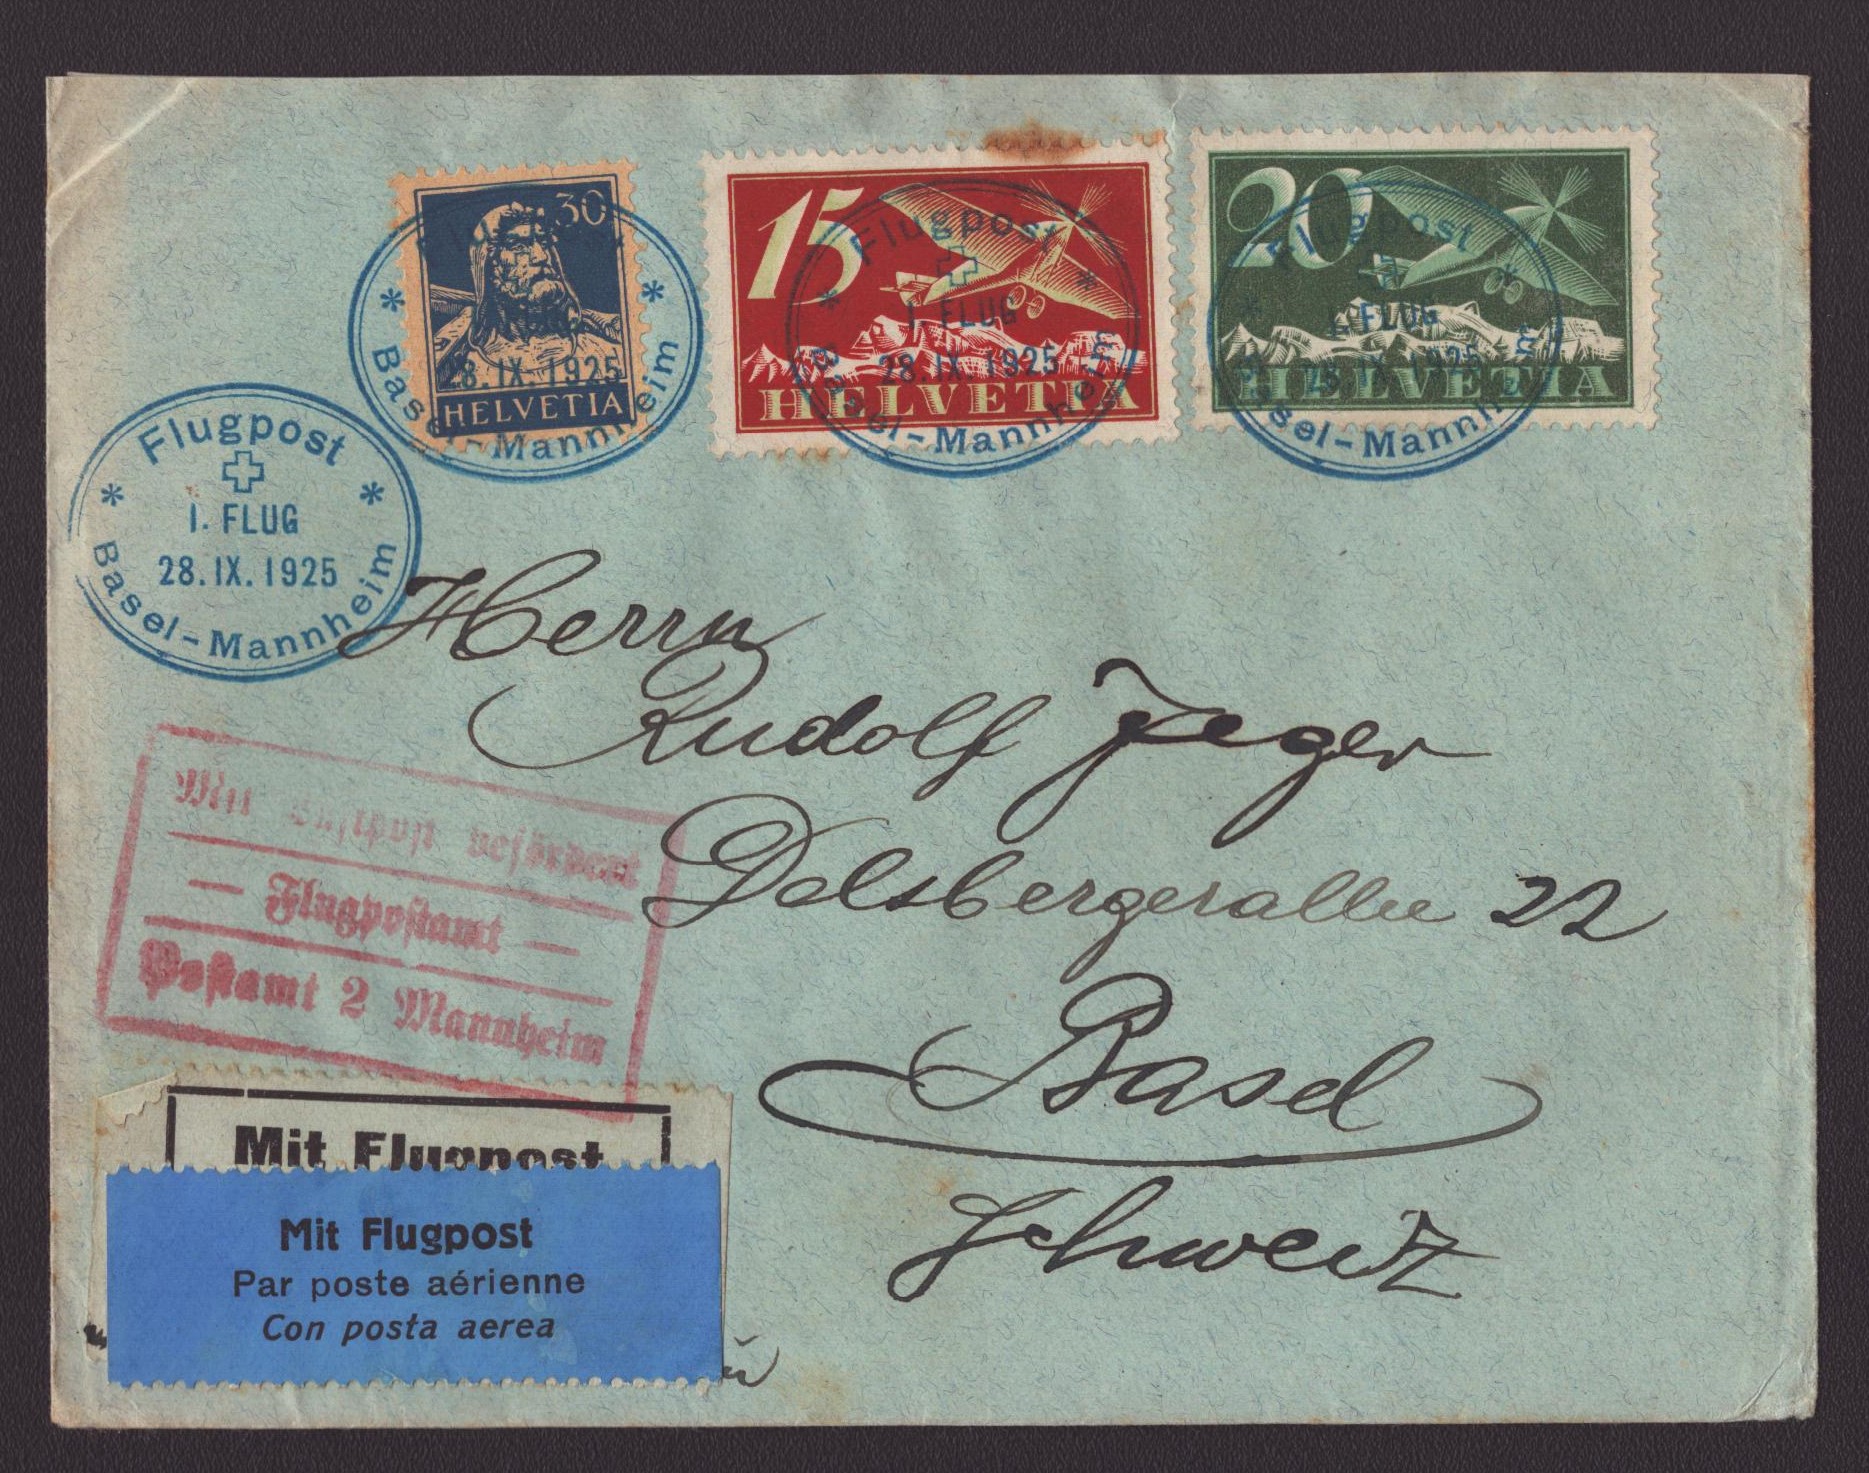 30
HELVETIA
* 28.IX.1925 *
Basel-Mannheim
15
HELVETIA
Flugpost
* I. FLUG *
28.IX.1925
Basel-Mannheim
20
HELVETIA
Flugpost
* I. FLUG *
28.IX.1925
Basel-Mannheim
Flugpost
* I. FLUG *
28.IX.1925
Basel-Mannheim
Herrn
Rudolf Jeger
Delsbergerallee 22
Basel
Schweiz
Mit Luftpost befördert
— Flugpostamt —
Postamt 2 Mannheim
Mit Flugpost
Mit Flugpost
Par poste aérienne
Con posta aerea